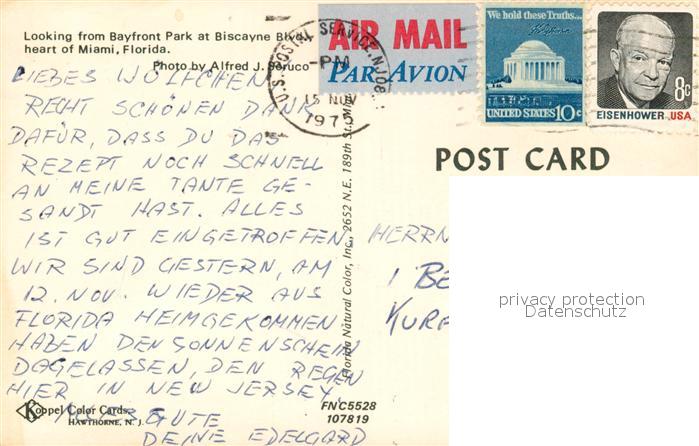 Looking from Bayfront Park at Biscayne Blvd.
heart of Miami, Florida.
Photo by Alfred J. Soruco
LIEBES WÖLFCHEN
RECHT SCHÖNEN DANK
DAFÜR, DASS DU DAS
REZEPT NOCH SCHNELL
AN MEINE TANTE GE-
SANDT HAST. ALLES
IST GUT EINGETROFFEN.
WIR SIND GESTERN, AM
12. NOV. WIEDER AUS
FLORIDA HEIMGEKOMMEN
HABEN DEN SONNENSCHEIN
DAGELASSEN, DEN REGEN
HIER IN NEW JERSEY.
ALLES GUTE
DEINE EDELGARD
Koppel Color Cards
HAWTHORNE, N. J.
FNC5528
107819
Florida Natural Color, Inc., 2652 N.E. 189th St.
U.S. POSTAL SERVICE, N.J.
PM
15 NOV
197
AIR MAIL
PAR AVION
We hold these Truths...
UNITED STATES 10c
8c
EISENHOWER USA
POST CARD
HERRN
1 BE
KURF
privacy protection
Datenschutz